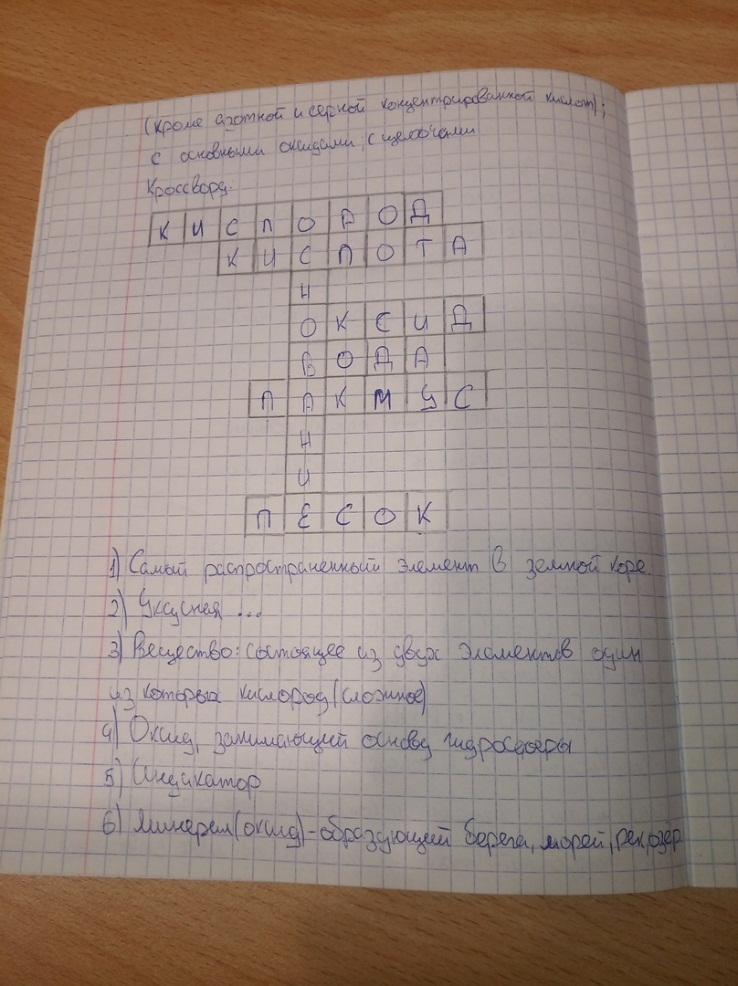 (кроме азотной и серной концентрированной кислот);
с основными оксидами, с щелочами
Кроссворд.
КИСЛОРОД
КИСЛОТА
Н
ОКСИД
ВОДА
ЛАКМУС
Н
И
ПЕСОК
1) Самый распространенный элемент в земной коре.
2) Уксусная ...
3) Вещество: состоящее из двух элементов один
из которых кислород (сложное)
4) Оксид, занимающий основу гидросферы
5) Индикатор
6) Минерал (оксид) - образующий берега, морей, рек, озёр